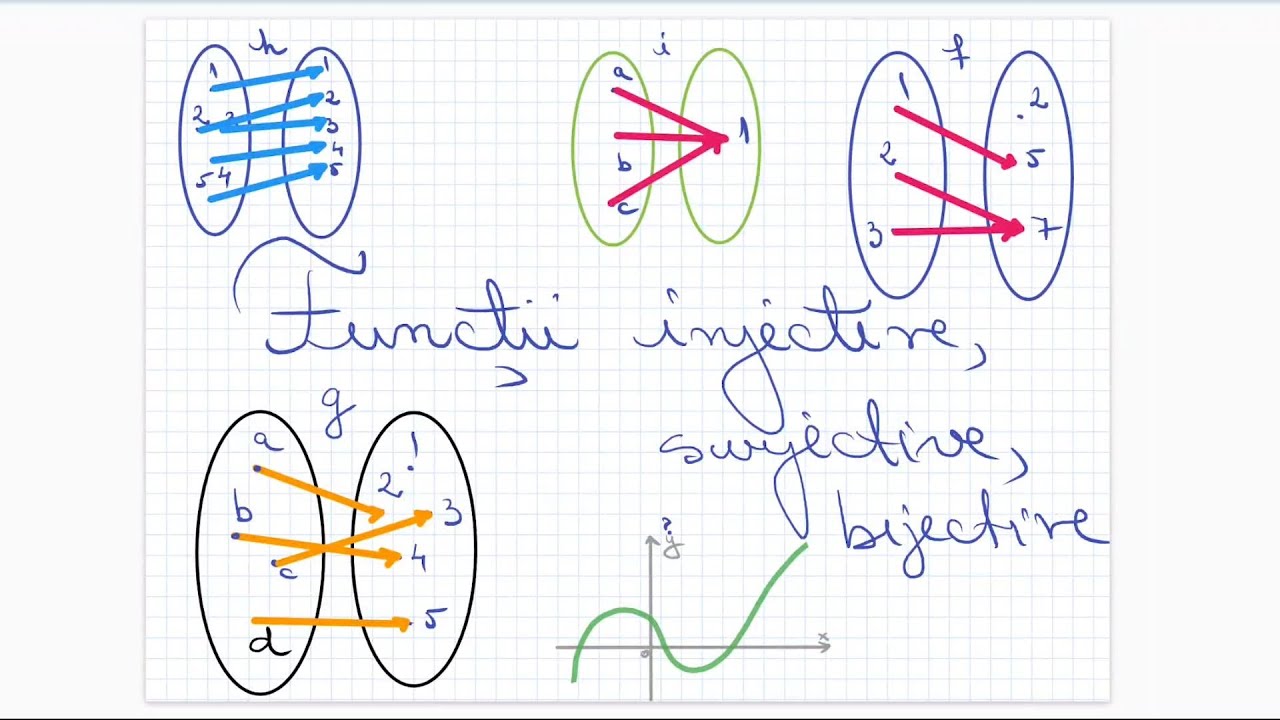 h
1
2 3
4
5
1
2
3
4
5
i
a
b
c
1
f
1
2
3
2
5
7
Funcții injective,
surjective,
bijective
g
a
b
c
d
1
2
3
4
5
?
y
x
0